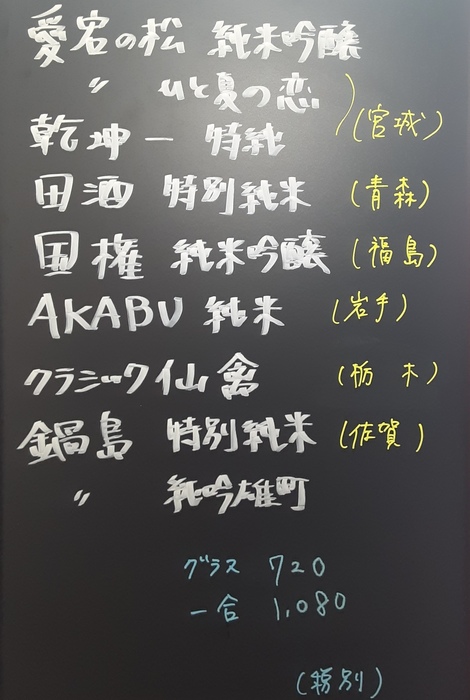 愛宕の松 純米吟醸
〃 ひと夏の恋
乾坤一 特純 (宮城)
田酒 特別純米 (青森)
国権 純米吟醸 (福島)
AKABU 純米 (岩手)
クラシック仙禽 (栃木)
鍋島 特別純米 (佐賀)
〃 純吟雄町
グラス 720
一合 1,080
(税別)